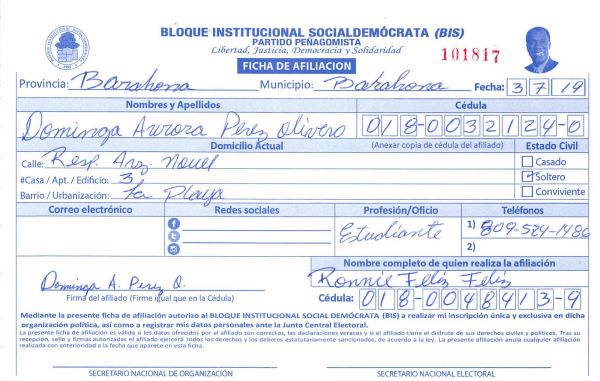 BLOQUE INSTITUCIONAL SOCIALDEMÓCRATA (BIS)
PARTIDO PEÑAGOMISTA
Libertad, Justicia, Democracia y Solidaridad
101817
FICHA DE AFILIACION
Provincia: Barahona Municipio: Barahona Fecha: 3 7 19
Nombres y Apellidos Cédula
Dominga Aurora Perez Olivero 018-0032124-0
Domicilio Actual (Anexar copia de cédula del afiliado) Estado Civil
Calle: Resp. Arz. Nouel Casado
#Casa / Apt. / Edificio: 3 Soltero
Barrio / Urbanización: La Playa Conviviente
Correo electrónico Redes sociales Profesión/Oficio Teléfonos
Estudiante 1) 809-524-1486
2)
Nombre completo de quien realiza la afiliación
Dominga A. Perez O. Ronnie Feliz Feliz
Firma del afiliado (Firme igual que en la Cédula) Cédula: 018-0048413-9
Mediante la presente ficha de afiliación autorizo al BLOQUE INSTITUCIONAL SOCIAL DEMÓCRATA (BIS) a realizar mi inscripción única y exclusiva en dicha
organización política, así como a registrar mis datos personales ante la Junta Central Electoral.
La presente ficha de afiliación es válida si los datos ofrecidos por el afiliado son correctos, las declaraciones veraces y si el afiliado tiene el disfrute de sus derechos civiles y políticos. Tras su
recepción, sello y firmas autorizadas el afiliado ejercerá todos los derechos y los deberes estatutariamente sancionados, de acuerdo a la ley. La presente afiliación anula cualquier afiliación
realizada con anterioridad a la fecha que aparece en esta ficha.
SECRETARIO NACIONAL DE ORGANIZACIÓN SECRETARIO NACIONAL ELECTORAL